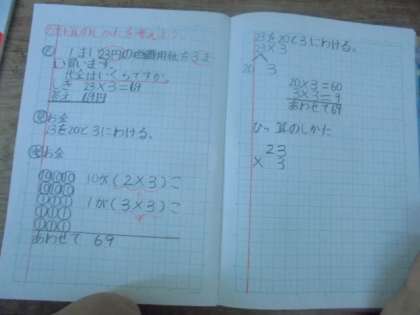 算のしかたを考えよう。
1まい23円の色画用紙を3ま
い買います。
代金はいくらですか。
しき 23×3=69
答え 69円
お金
23を20と3にわける。
お金
10が(2×3)こ
1が(3×3)こ
あわせて 69
23を20と3にわける。
23×3
20 3
20×3=60
3×3=9
あわせて69
ひっ算のしかた
23
× 3